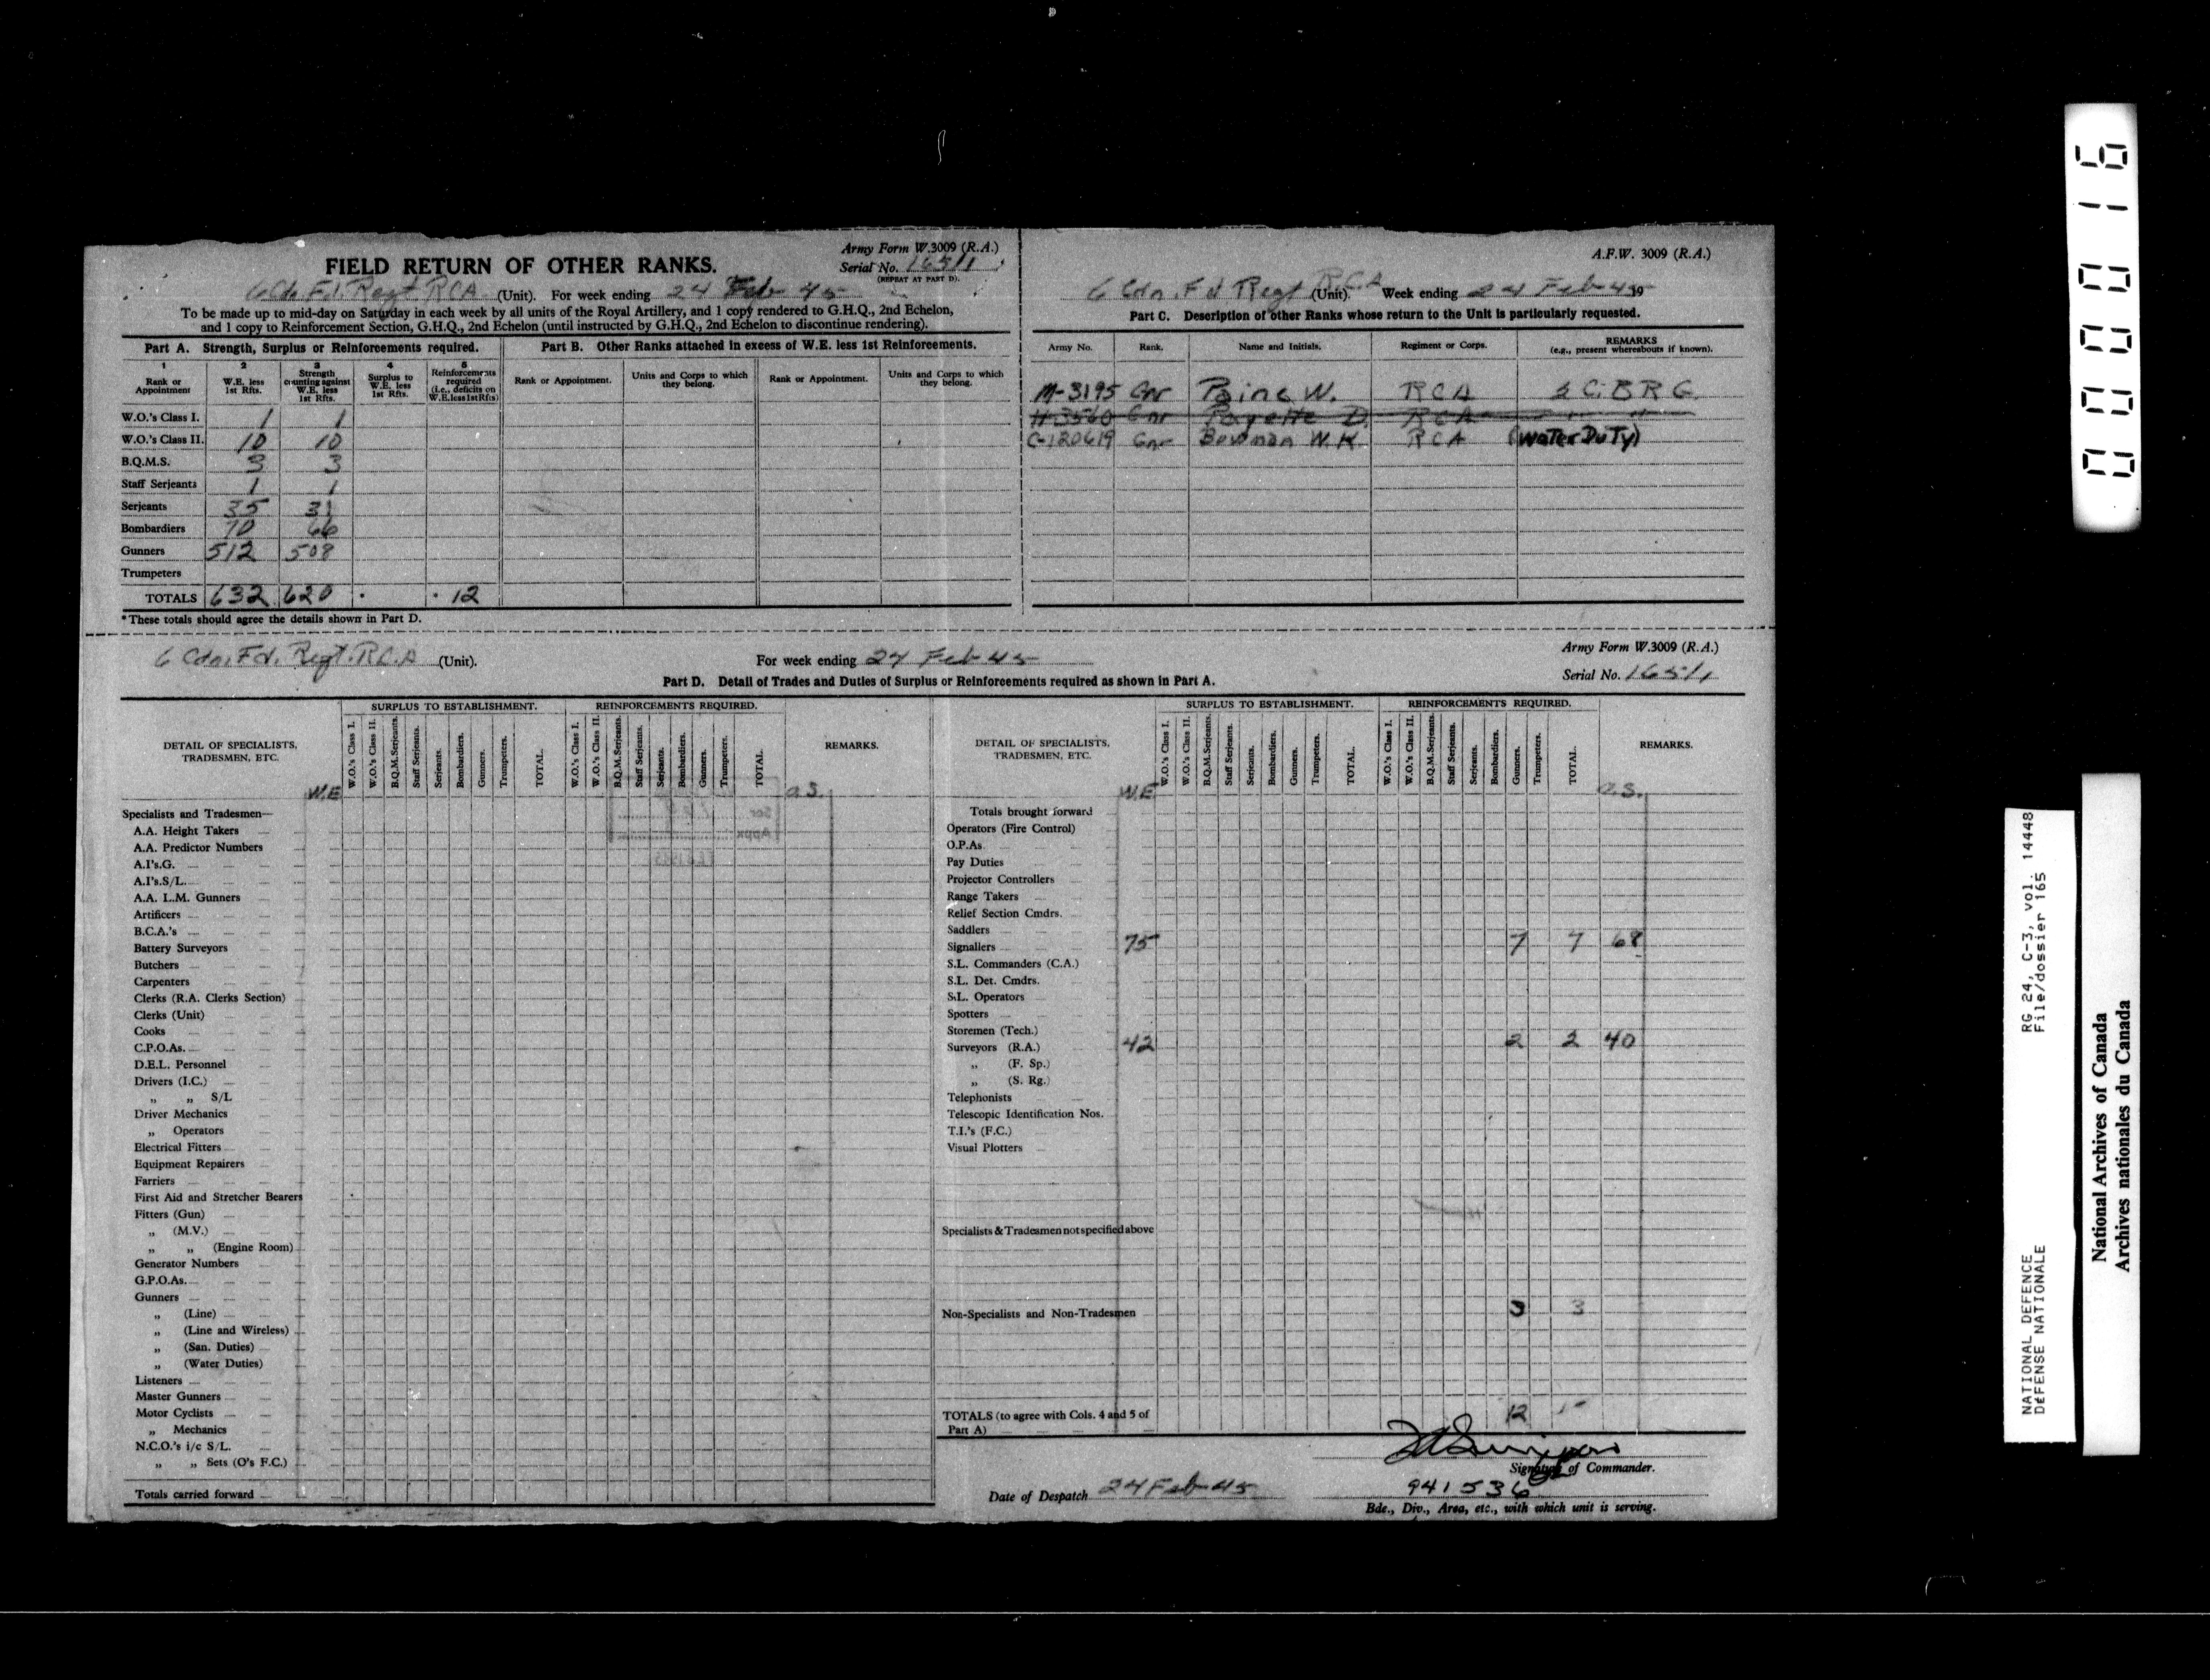 Army Form W.3009 (R.A.)
FIELD RETURN OF OTHER RANKS.
Serial No. 165/1
(REPEAT AT PART D).
6 Cdn Fd. Regt RCA (Unit). For week ending 24 Feb 45
To be made up to mid-day on Saturday in each week by all units of the Royal Artillery, and 1 copy rendered to G.H.Q., 2nd Echelon,
and 1 copy to Reinforcement Section, G.H.Q., 2nd Echelon (until instructed by G.H.Q., 2nd Echelon to discontinue rendering).
Part A. Strength, Surplus or Reinforcements required.
1 2 3 4 5
Rank or Appointment
W.E. less 1st Rfts.
Strength counting against W.E. less 1st Rfts.
Surplus to W.E. less 1st Rfts.
Reinforcements required (i.e., deficits on W.E. less 1st Rfts)
W.O.'s Class I. 1 1
W.O.'s Class II. 10 10
B.Q.M.S. 3 3
Staff Serjeants 1 1
Serjeants 35 31
Bombardiers 70 66
Gunners 512 508
Trumpeters
TOTALS 632 620 * * 12
*These totals should agree the details shown in Part D.
Part B. Other Ranks attached in excess of W.E. less 1st Reinforcements.
Rank or Appointment.
Units and Corps to which they belong.
Rank or Appointment.
Units and Corps to which they belong.
A.F.W. 3009 (R.A.)
6 Cdn. Fd Regt R.C.A (Unit). Week ending 24 Feb 45 19
Part C. Description of other Ranks whose return to the Unit is particularly requested.
Army No. Rank. Name and Initials. Regiment or Corps.
REMARKS
(e.g., present whereabouts if known).
M-3195 Gnr Paine W. RCA 2 C.B.R.G.
H-3560 Gnr Payette D. RCA " "
C-120619 Gnr Bowman W.K. RCA (Water Duty)
6 Cdn. Fd. Regt. R.C.A (Unit).
For week ending 24 Feb 45
Army Form W.3009 (R.A.)
Serial No. 165/1
Part D. Detail of Trades and Duties of Surplus or Reinforcements required as shown in Part A.
DETAIL OF SPECIALISTS, TRADESMEN, ETC.
W.E
SURPLUS TO ESTABLISHMENT.
W.O.'s Class I.
W.O.'s Class II.
B.Q.M.Serjeants.
Staff Serjeants.
Serjeants.
Bombardiers.
Gunners.
Trumpeters.
TOTAL.
REINFORCEMENTS REQUIRED.
W.O.'s Class I.
W.O.'s Class II.
B.Q.M.Serjeants.
Staff Serjeants.
Serjeants.
Bombardiers.
Gunners.
Trumpeters.
TOTAL.
REMARKS.
a.s.
Specialists and Tradesmen—
A.A. Height Takers
A.A. Predictor Numbers
A.I's.G.
A.I's.S/L.
A.A. L.M. Gunners
Artificers
B.C.A.'s
Battery Surveyors
Butchers
Carpenters
Clerks (R.A. Clerks Section)
Clerks (Unit)
Cooks
C.P.O.As.
D.E.L. Personnel
Drivers (I.C.)
„ „ S/L
Driver Mechanics
„ Operators
Electrical Fitters
Equipment Repairers
Farriers
First Aid and Stretcher Bearers
Fitters (Gun)
„ (M.V.)
„ „ (Engine Room)
Generator Numbers
G.P.O.As.
Gunners
„ (Line)
„ (Line and Wireless)
„ (San. Duties)
„ (Water Duties)
Listeners
Master Gunners
Motor Cyclists
„ Mechanics
N.C.O.'s i/c S/L.
„ „ Sets (O's F.C.)
Totals carried forward
DETAIL OF SPECIALISTS, TRADESMEN, ETC.
W.E
SURPLUS TO ESTABLISHMENT.
W.O.'s Class I.
W.O.'s Class II.
B.Q.M.Serjeants.
Staff Serjeants.
Serjeants.
Bombardiers.
Gunners.
Trumpeters.
TOTAL.
REINFORCEMENTS REQUIRED.
W.O.'s Class I.
W.O.'s Class II.
B.Q.M.Serjeants.
Staff Serjeants.
Serjeants.
Bombardiers.
Gunners.
Trumpeters.
TOTAL.
REMARKS.
a.s.
Totals brought forward
Operators (Fire Control)
O.P.As
Pay Duties
Projector Controllers
Range Takers
Relief Section Cmdrs.
Saddlers
Signallers 75 7 7 68
S.L. Commanders (C.A.)
S.L. Det. Cmdrs.
S.L. Operators
Spotters
Storemen (Tech.)
Surveyors (R.A.) 42 2 2 40
„ (F. Sp.)
„ (S. Rg.)
Telephonists
Telescopic Identification Nos.
T.I.'s (F.C.)
Visual Plotters
Specialists & Tradesmen not specified above
Non-Specialists and Non-Tradesmen 3 3
TOTALS (to agree with Cols. 4 and 5 of Part A) 12
Signature of Commander.
Date of Despatch 24 Feb 45
941536
Bde., Div., Area, etc., with which unit is serving.
000016
NATIONAL DEFENCE RG 24, C-3, vol. 14448
DÉFENSE NATIONALE File/dossier 165
National Archives of Canada
Archives nationales du Canada